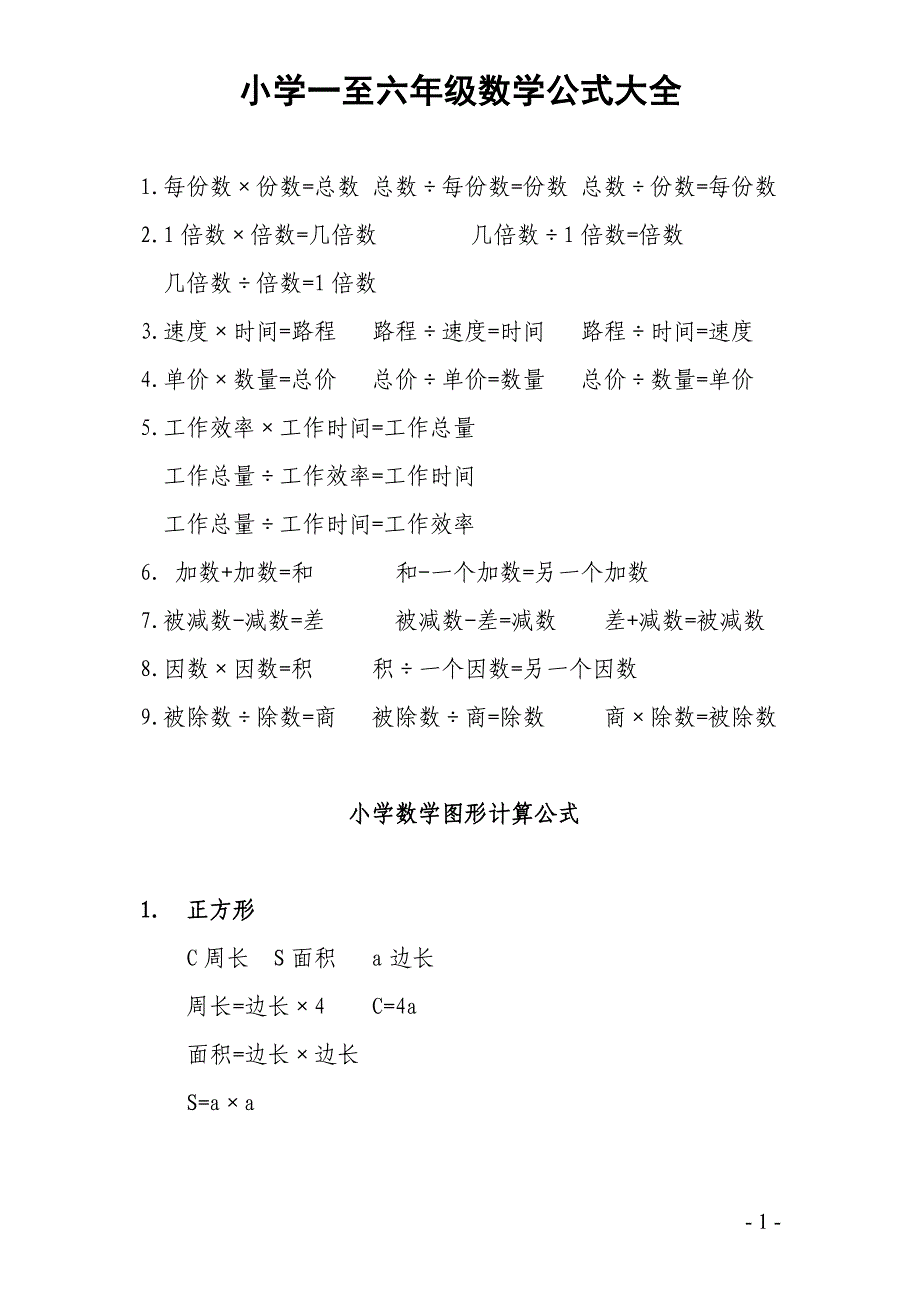 小学一至六年级数学公式大全
1.每份数×份数=总数 总数÷每份数=份数 总数÷份数=每份数
2.1倍数×倍数=几倍数 几倍数÷1倍数=倍数
几倍数÷倍数=1倍数
3.速度×时间=路程 路程÷速度=时间 路程÷时间=速度
4.单价×数量=总价 总价÷单价=数量 总价÷数量=单价
5.工作效率×工作时间=工作总量
工作总量÷工作效率=工作时间
工作总量÷工作时间=工作效率
6. 加数+加数=和 和-一个加数=另一个加数
7.被减数-减数=差 被减数-差=减数 差+减数=被减数
8.因数×因数=积 积÷一个因数=另一个因数
9.被除数÷除数=商 被除数÷商=除数 商×除数=被除数
小学数学图形计算公式
1. 正方形
C周长 S面积 a边长
周长=边长×4 C=4a
面积=边长×边长
S=a×a
- 1 -